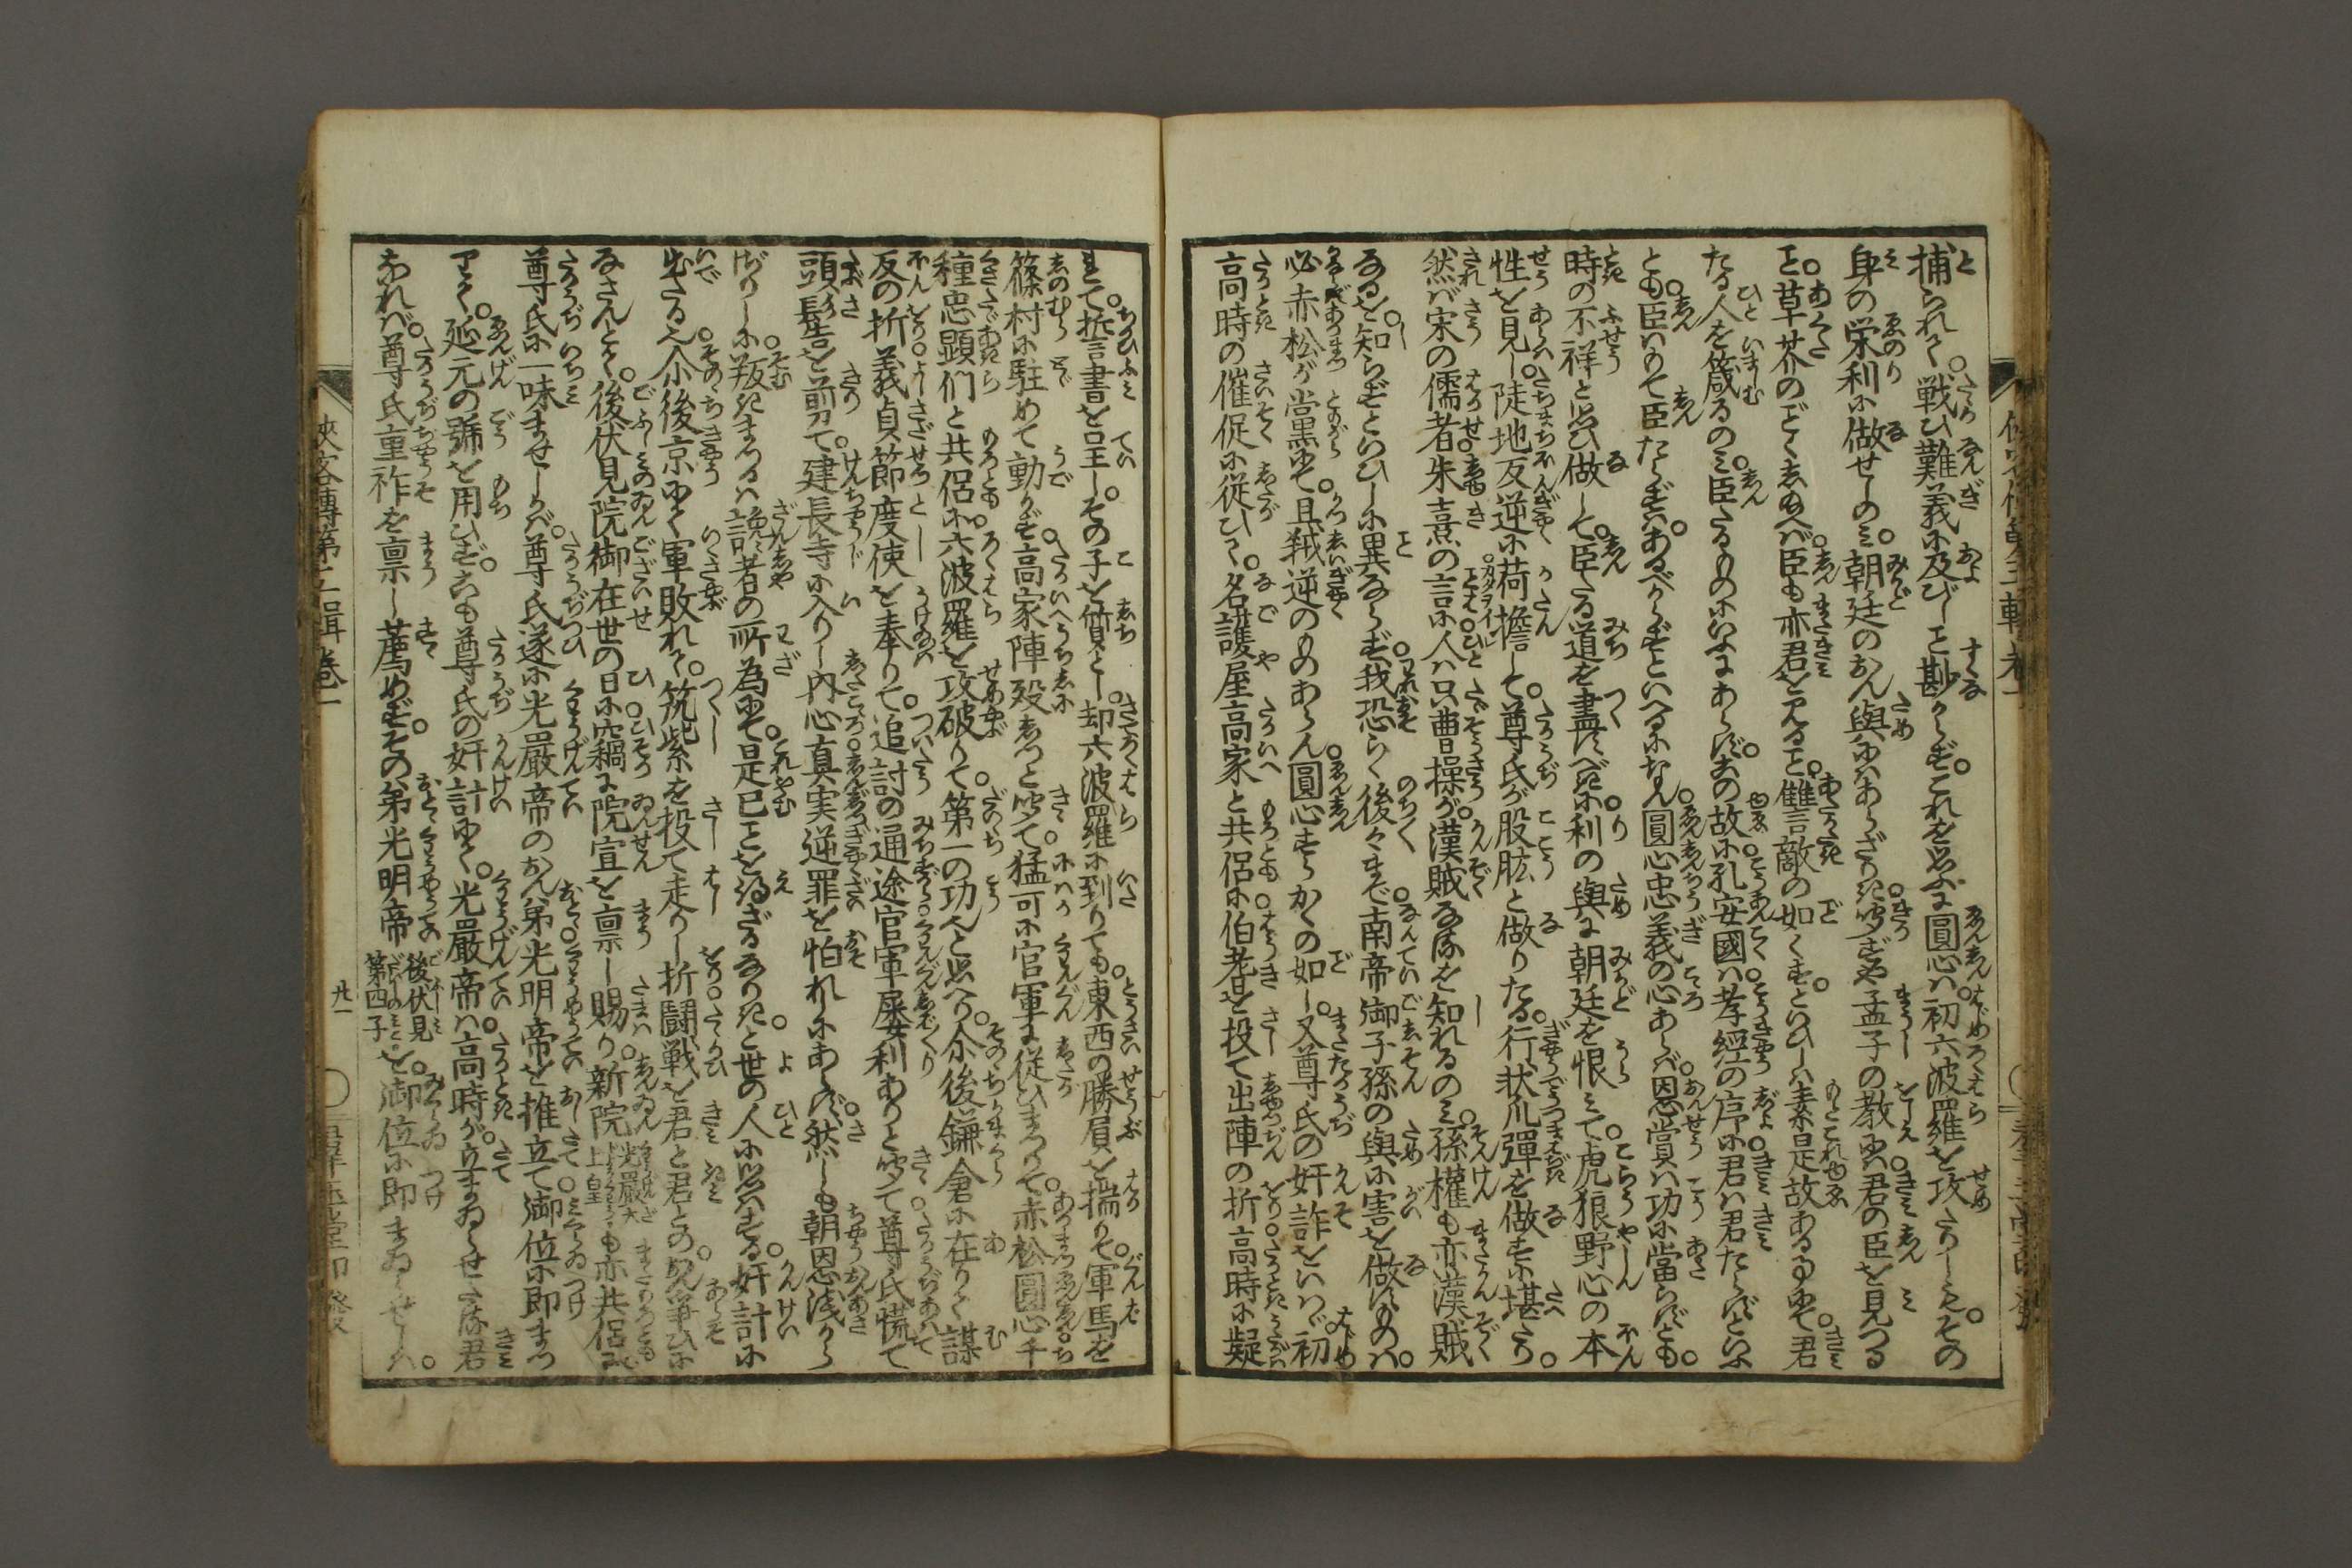 捕られて。戦ひ難義に及びしこと尠からず。これを思ふに圓心は。初六波羅を攻たりしも。その
身の栄利に做せしのみ。朝廷のおん與にはあらざりき。聞ずや孟子の教に。君の臣を見つる
こと。草芥のごとくしぬへば。臣も亦君を見ること。讐敵の如くすといひしは。素是故ある事にて。君
たる人を箴るのみ。臣たるものにいふにあらず。この故に孔安國は。孝經の序に。君は君たらずといふ
とも。臣はもて臣たらずはあるべからずといへるになん。圓心忠義の心あらば。恩賞は功に當らずとも。
時の不祥と思ひ做して。臣たる道を盡すべきに。利の與に朝廷を恨みて。虎狼野心の本
性を見し。陡地反逆に荷擔して。尊氏が股肱と做りたる。行状爪彈を做すに堪たり。
然ば宋の儒者。朱熹の言に。人は只曹操が。漢賊なるを知れるのみ。孫權も亦漢賊
なるを。知らずといひしに異ならず。我恐らく後々まで。南帝御子孫の與に害を做すものは。
必赤松が當黒にて。且弑逆のものあらん。圓心すらかくの如し。又尊氏の奸詐をいはゞ。初
高時の催促に從ひて。名護屋高家と共侶に。伯耆を投て出陣の折。高時に疑
れて。誓書を呈し。その子を質とし。却六波羅に到りても。東西の勝負を揣りて。軍馬を
篠村に駐めて動かず。高家陣歿しつと聞て。猛可に官軍に從ひまつりて。赤松圓心千
種忠顕們と共侶に。六波羅を攻破りて。第一の功と思へり。尒後鎌倉に在りて。謀
反の折。義貞節度使を奉りて。追討の通途。官軍屡利ありと聞て。尊氏慌て
頭髻を剪て。建長寺に入りし。内心真実逆罪を怕れにあらず。然しも朝恩淺から
ざりしに。叛きまつるは。讒者の所為にて。是已ことを得ざるなりきと。世の人に思はする。奸計に
出たる也。尒後京にて軍敗れて。筑紫を投て走りし折。闘戦を君と君との。おん爭ひに
なさんとて。後伏見院御在世の日に。竊に院宣を禀し賜り。新院光嚴太上皇も亦共侶に
尊氏に一味ませしかば。尊氏遂に光嚴帝のおん弟。光明帝を推立て。御位に即まつ
りて。延元の號を用ひず。こも尊氏の奸計にて。光嚴帝は。高時が。立まゐらせたる君
なれば。尊氏重祚を禀し薦めず。その弟光明帝後伏見第四子を。御位に即まゐらせしは。
侠客傳第五輯巻一
廿一